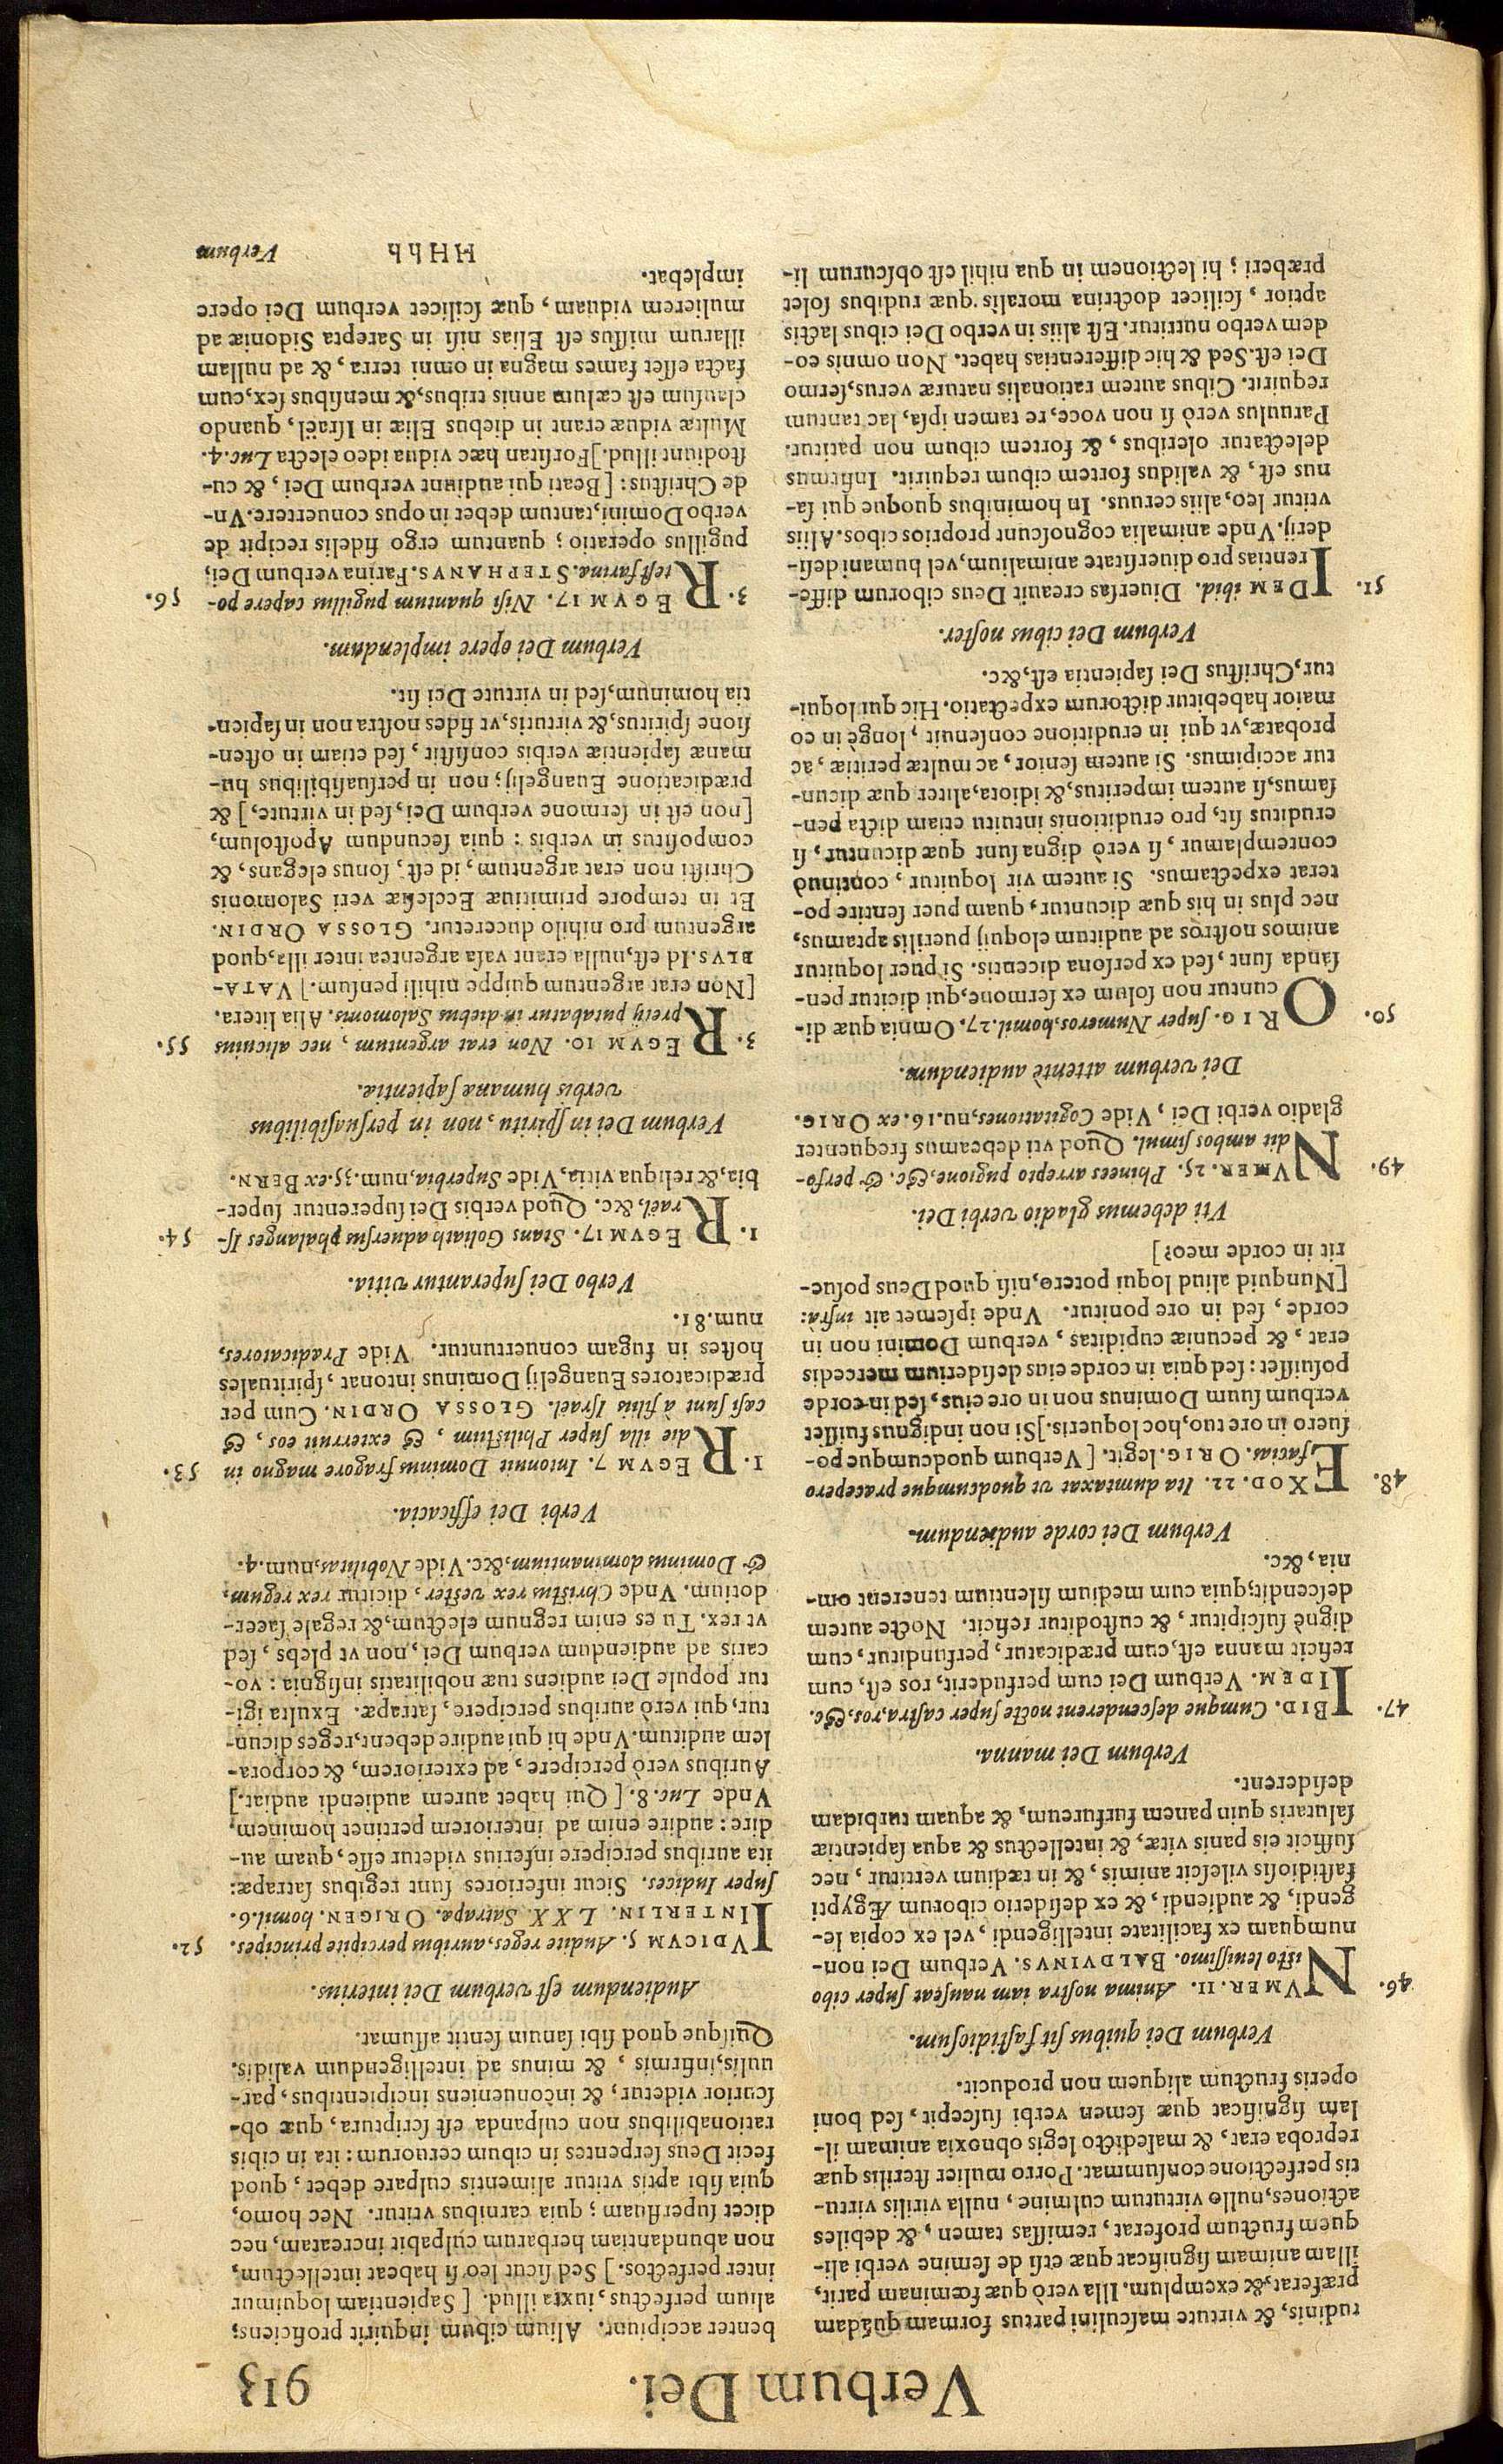 Verbum Dei. 913
rudinis, & virtute masculini partus formam quādam
præferat, & exemplum. Illa verò quæ fœminam parit,
illam animam significat quæ etsi de semine verbi ali-
quem fructum proferat, remissas tamen, & debiles
actiones, nullo virtutum culmine, nulla virilis virtu-
tis perfectione consummat. Porro mulier sterilis quæ
reproba erat, & maledicto legis obnoxia animam il-
lam significat quæ semen verbi suscepit, sed boni
operis fructum aliquem non producit.
Verbum Dei quibus sit fastidiosum.
46. NVMER. 11. Anima nostra iam nauseat super cibo
isto leuissimo. BALDVINVS. Verbum Dei non-
numquam ex facilitate intelligendi, vel ex copia le-
gendi, & audiendi, & ex desiderio ciborum Ægypti
fastidiosis vilescit animis, & in tædium vertitur, nec
sufficit eis panis vitæ, & intellectus & aqua sapientiæ
salutaris quin panem furfureum, & aquam turbidam
desiderent.
Verbum Dei manna.
47. IBID. Cumque descenderent nocte super castra, ros, &c.
IDEM. Verbum Dei cum perfuderit, ros est, cum
reficit manna est, cum prædicatur, perfunditur, cum
dignè suscipitur, & custoditur reficit. Nocte autem
descendit; quia cum medium silentium tenerent om-
nia, &c.
Verbum Dei corde audiendum.
48. EXOD. 22. Ita dumtaxat vt quodcumque præcepero
facias. ORIG. legit. [Verbum quodcumque po-
suero in ore tuo, hoc loqueris.] Si non indignus fuisset
verbum suum Dominus non in ore eius, sed in corde
posuisset: sed quia in corde eius desiderium mercedis
erat, & pecuniæ cupiditas, verbum Domini non in
corde, sed in ore ponitur. Vnde ipsemet ait infrà:
[Nunquid aliud loqui potero, nisi quod Deus posue-
rit in corde meo?]
Vti debemus gladio verbi Dei.
49. NVMER. 25. Phinees arrepto pugione, &c. & perfo-
dit ambos simul. Quod vti debeamus frequenter
gladio verbi Dei, Vide Cogitationes, nu. 16. ex ORIG.
Dei verbum attentè audiendum.
50. ORIG. super Numeros, homil. 27. Omnia quæ di-
cuntur non solum ex sermone, qui dicitur pen-
sanda sunt, sed ex persona dicentis. Si puer loquitur
animos nostros ad auditum eloquij puerilis aptamus,
nec plus in his quæ dicuntur, quam puer sentire po-
terat expectamus. Si autem vir loquitur, continuò
contemplamur, si verò digna sunt quæ dicuntur, si
eruditus sit, pro eruditionis intuitu etiam dicta pen-
samus, si autem imperitus, & idiota, aliter quæ dicun-
tur accipimus. Si autem senior, ac multæ peritiæ, ac
probatæ, vt qui in eruditione consenuit, longè in eo
maior habebitur dictorum expectatio. Hic qui loqui-
tur, Christus Dei sapientia est, &c.
Verbum Dei cibus noster.
51. IDEM ibid. Diuersas creauit Deus ciborum diffe-
rentias pro diuersitate animalium, vel humani desi-
derij. Vnde animalia cognoscunt proprios cibos. Aliis
vtitur leo, aliis ceruus. In hominibus quoque qui sa-
nus est, & validus fortem cibum requirit. Infirmus
delectatur oleribus, & fortem cibum non patitur.
Paruulus verò si non voce, re tamen ipsa, lac tantum
requirit. Cibus autem rationalis naturæ verus, sermo
Dei est. Sed & hic differentias habet. Non omnis eo-
dem verbo nutritur. Est aliis in verbo Dei cibus lactis
aptior, scilicet doctrina moralis quæ rudibus solet
præberi; hi lectionem in qua nihil est obscurum li-
benter accipiunt. Alium cibum inquirit proficiens;
alium perfectus, iuxta illud. [Sapientiam loquimur
inter perfectos.] Sed sicut leo si habeat intellectum,
non abundantiam herbarum culpabit increatam, nec
dicet superfluam; quia carnibus vtitur. Nec homo,
quia sibi aptis vtitur alimentis culpare debet, quod
fecit Deus serpentes in cibum ceruorum: ita in cibis
rationabilibus non culpanda est scriptura, quæ ob-
scurior videtur, & inconueniens incipientibus, par-
uulis, infirmis, & minus ad intelligendum validis.
Quisque quod sibi sanum sentit assumat.
Audiendum est verbum Dei interius.
IVDICVM 5. Audite reges, auribus percipite principes. 52.
INTERLIN. LXX. Satrapæ. ORIGEN. homil. 6.
super Iudices. Sicut inferiores sunt regibus satrapæ:
ita auribus percipere inferius videtur esse, quam au-
dire: audire enim ad interiorem pertinet hominem.
Vnde Luc. 8. [Qui habet aurem audiendi audiat.]
Auribus verò percipere, ad exteriorem, & corpora-
lem auditum. Vnde hi qui audire debent, reges dicun-
tur, qui verò auribus percipere, satrapæ. Exulta igi-
tur popule Dei audiens tuæ nobilitatis insignia: vo-
caris ad audiendum verbum Dei, non vt plebs, sed
vt rex. Tu es enim regnum electum, & regale sacer-
dotium. Vnde Christus rex vester, dicitur rex regum,
& Dominus dominantium, &c. Vide Nobilitas, num. 4.
Verbi Dei efficacia.
1. REGVM 7. Intonuit Dominus fragore magno in 53.
die illa super Philistiim, & exterruit eos, &
cæsi sunt à filiis Israël. GLOSSA ORDIN. Cum per
prædicatores Euangelij Dominus intonat, spirituales
hostes in fugam conuertuntur. Vide Prædicatores,
num. 81.
Verbo Dei superantur vitia.
1. REGVM 17. Stans Goliath aduersus phalanges Is- 54.
raël, &c. Quod verbis Dei superentur super-
bia, & reliqua vitia, Vide Superbia, num. 35. ex BERN.
Verbum Dei in spiritu, non in persuasibilibus
verbis humanæ sapientiæ.
3. REGVM 10. Non erat argentum, nec alicuius 55.
pretij putabatur in diebus Salomonis. Alia litera.
[Non erat argentum quippe nihili pensum.] VATA-
BLVS. Id est, nulla erant vasa argentea inter illa, quod
argentum pro nihilo duceretur. GLOSSA ORDIN.
Et in tempore primitiuæ Ecclesiæ veri Salomonis
Christi non erat argentum, id est, sonus elegans, &
compositus in verbis: quia secundum Apostolum,
[non est in sermone verbum Dei, sed in virtute,] &
prædicatione Euangelij; non in persuasibilibus hu-
manæ sapientiæ verbis consistit, sed etiam in osten-
sione spiritus, & virtutis, vt fides nostra non in sapien-
tia hominum, sed in virtute Dei sit.
Verbum Dei opere implendum.
3. REGVM 17. Nisi quantum pugillus capere po- 56.
test farinæ. STEPHANVS. Farina verbum Dei,
pugillus operatio; quantum ergo fidelis recipit de
verbo Domini, tantum debet in opus conuertere. Vn-
de Christus: [Beati qui audiunt verbum Dei, & cu-
stodiunt illud.] Forsitan hæc vidua ideo electa Luc. 4.
Multæ viduæ erant in diebus Eliæ in Israël, quando
clausum est cælum annis tribus, & mensibus sex, cum
facta esset fames magna in omni terra, & ad nullam
illarum missus est Elias nisi in Sarepta Sidoniæ ad
mulierem viduam, quæ scilicet verbum Dei opere
implebat.
HHhh Verbum